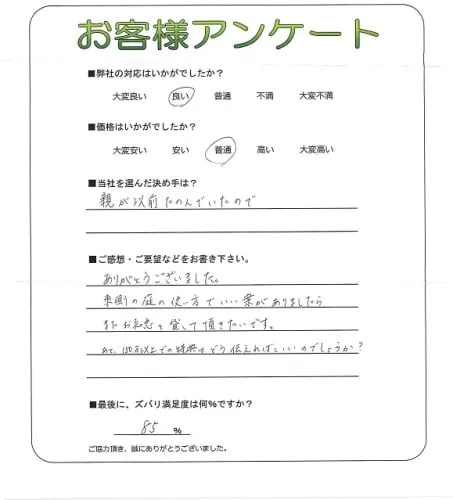 お客様アンケート
■弊社の対応はいかがでしたか?
大変良い 良い 普通 不満 大変不満
■価格はいかがでしたか?
大変安い 安い 普通 高い 大変高い
■当社を選んだ決め手は?
親が以前たのんでいたので
■ご感想・ご要望などをお書き下さい。
ありがとうございました。
東側の庭の使い方でいい案がありましたら
またお知恵を貸して頂きたいです。
あと、150万以上での特典はどう伝えればいいのでしょうか?
■最後に、ズバリ満足度は何%ですか?
85 %
ご協力頂き、誠にありがとうございました。